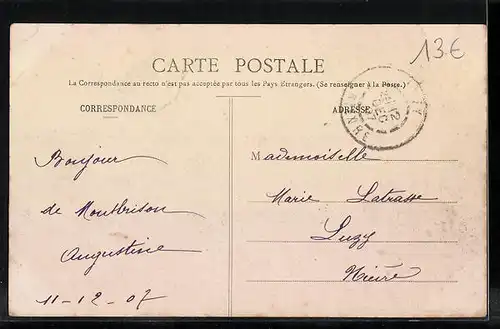 13€
CARTE POSTALE
La Correspondance au recto n'est pas acceptée par tous les Pays Etrangers. (Se renseigner à la Poste.)
CORRESPONDANCE
ADRESSE
Bonjour
de Montbrison
Augustine
11-12-07
Mademoiselle
Marie Latrasse
Luzy
Nièvre